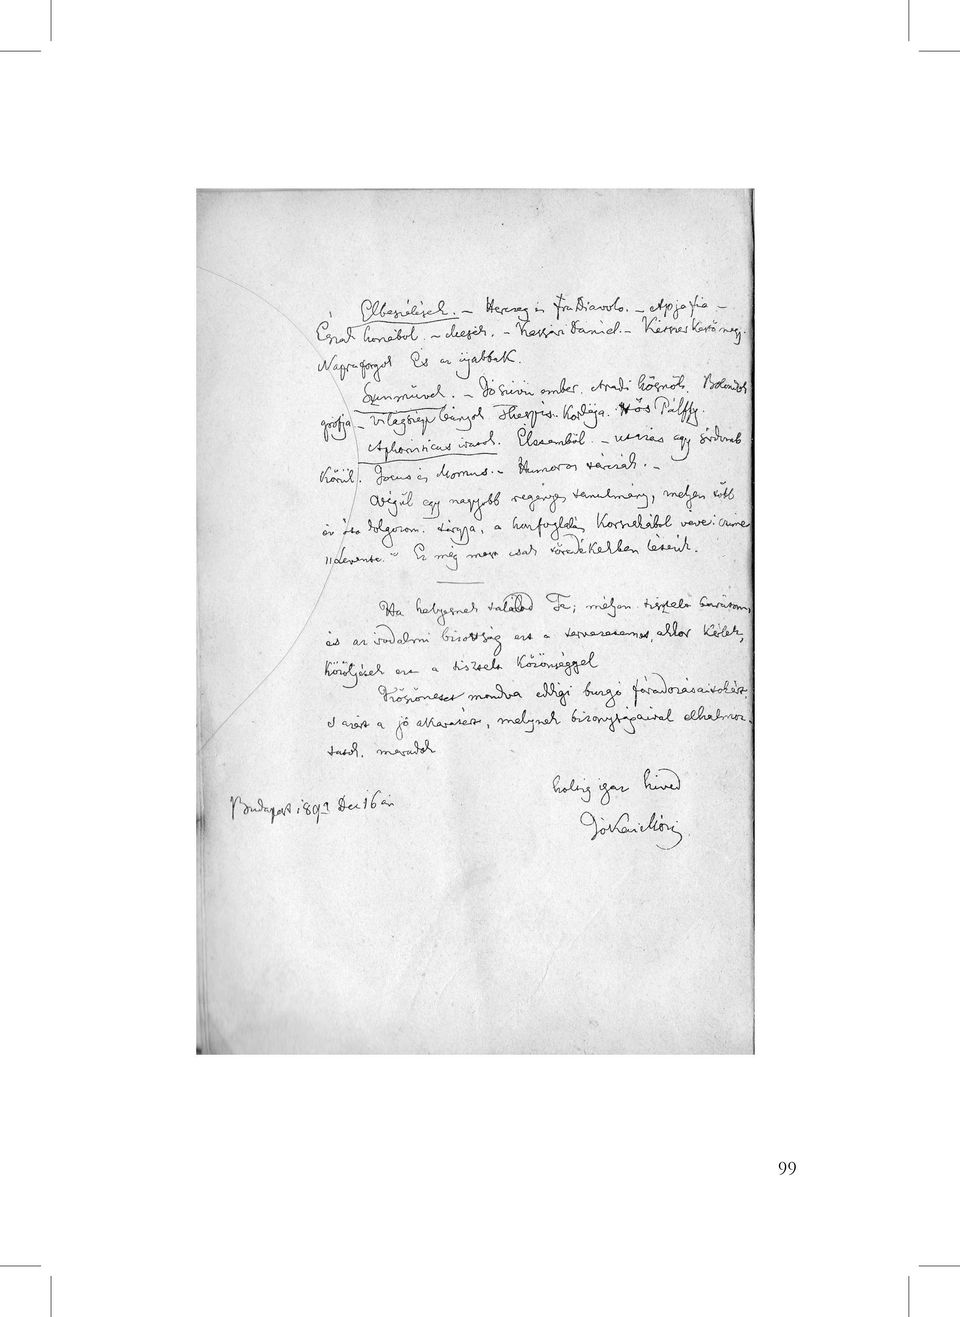 Elbeszélések. – Herczeg és Fra Diavolo. – Apja fia –
Észak honából. – Mesék. – Kassári Dániel. – Kétszer kettő négy.
Napraforgók És az újabbak.
Színművek. – Jószívű ember. Aradi hősnők. Bolondok
grófja – Világszép leányok Thespis Kordéja. Hős Pálffy.
Aphoristicus írások. Életemből. – utazás egy sírdomb
körül. Jocus és Momus. – Humoros tárczák. –
Végül egy nagyobb regényes tanulmány, melyen több
év óta dolgozom. tárgya, a honfoglalás Korszakából véve: czime
„Levente." Ez még most csak töredékekben létezik.
Ha helyesnek találod Te, mélyen tisztelt barátom,
és az irodalmi bizottság ezt a tervezetemet, akkor kérlek,
közöljétek ezt a tisztelt közönséggel
Köszönetet mondva eddigi buzgó fáradozásaitokért
s azért a jó akaratért, melynek bizonyságaival elhalmoz-
tatok, maradok
holtig igaz hived
Budapest 1892 Dec 16án
Jókai Mór
99